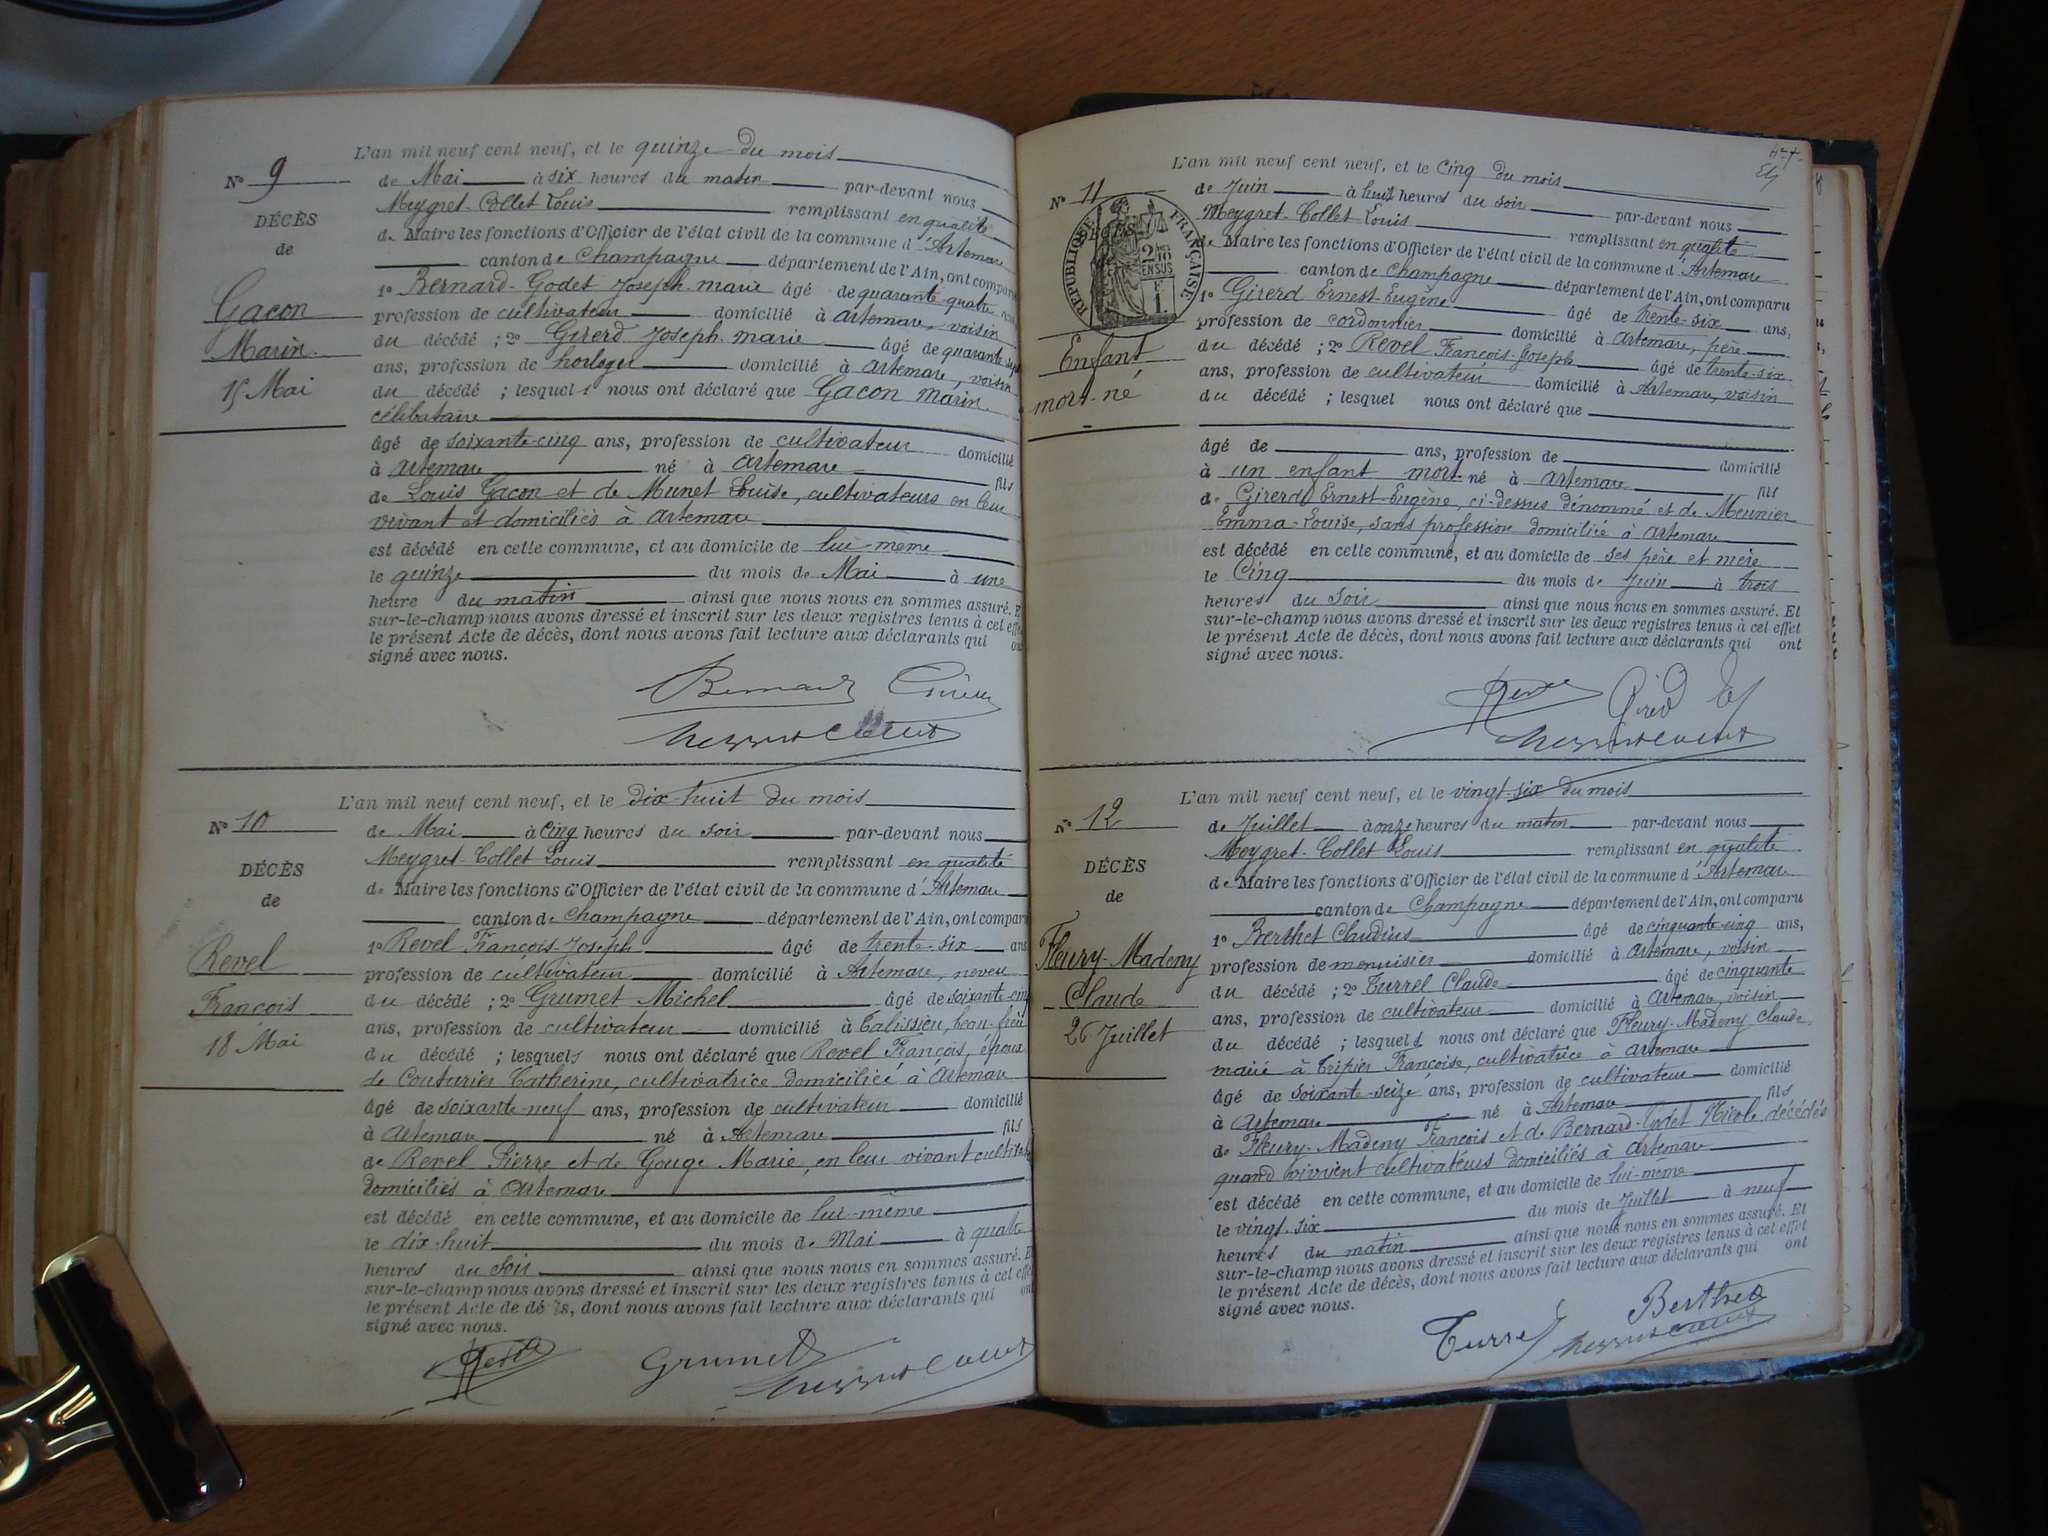 L'an mil neuf cent neuf, et le quinze du mois
N° 9
DÉCÈS
de
Gacon
Marin
15 Mai
de Mai à six heures du matin par-devant nous
Meygret-Collet Louis remplissant en qualité
de Maire les fonctions d'Officier de l'état civil de la commune d'Artemare
canton de Champagne département de l'Ain, ont comparu
1° Bernard-Godet Joseph-marie âgé de quarante-quatre
profession de cultivateur domicilié à Artemare, voisin
du décédé ; 2° Girerd Joseph-marie âgé de quarante-sept
ans, profession de horloger domicilié à Artemare, voisin
du décédé ; lesquels nous ont déclaré que Gacon Marin
célibataire
âgé de soixante-cinq ans, profession de cultivateur domicilié
à Artemare né à Artemare fils
de Louis Gacon et de Munet Louise, cultivateurs en leur
vivant et domiciliés à Artemare
est décédé en cette commune, et au domicile de lui-même
le quinze du mois de Mai à une
heure du matin ainsi que nous nous en sommes assuré. Et
sur-le-champ nous avons dressé et inscrit sur les deux registres tenus à cet effet
le présent Acte de décès, dont nous avons fait lecture aux déclarants qui ont
signé avec nous.
L'an mil neuf cent neuf, et le dix-huit du mois
N° 10
DÉCÈS
de
Revel
François
18 Mai
de Mai à cinq heures du soir par-devant nous
Meygret-Collet Louis remplissant en qualité
de Maire les fonctions d'Officier de l'état civil de la commune d'Artemare
canton de Champagne département de l'Ain, ont comparu
1° Revel François-Joseph âgé de trente-six ans
profession de cultivateur domicilié à Artemare, neveu
du décédé ; 2° Grumet Michel âgé de soixante-cinq
ans, profession de cultivateur domicilié à Talissieu, beau-frère
du décédé ; lesquels nous ont déclaré que Revel François, époux
de Couturier Catherine, cultivatrice domiciliée à Artemare
âgé de soixante-neuf ans, profession de cultivateur domicilié
à Artemare né à Artemare fils
de Revel Pierre et de Gouge Marie, en leur vivant cultivateurs
domiciliés à Artemare
est décédé en cette commune, et au domicile de lui-même
le dix-huit du mois de Mai à quatre
heures du soir ainsi que nous nous en sommes assuré. Et
sur-le-champ nous avons dressé et inscrit sur les deux registres tenus à cet effet
le présent Acte de décès, dont nous avons fait lecture aux déclarants qui ont
signé avec nous.
Grumet
L'an mil neuf cent neuf, et le cinq du mois
N° 11
RÉPUBLIQUE FRANÇAISE
Enfant
mort-né
de Juin à huit heures du soir par-devant nous
Meygret-Collet Louis remplissant en qualité
de Maire les fonctions d'Officier de l'état civil de la commune d'Artemare
canton de Champagne département de l'Ain, ont comparu
1° Girerd Ernest-Eugène âgé de trente-six ans,
profession de cordonnier domicilié à Artemare, père
du décédé ; 2° Revel François-Joseph âgé de trente-six
ans, profession de cultivateur domicilié à Artemare, voisin
du décédé ; lesquel nous ont déclaré que
âgé de ans, profession de domicilié
à un enfant mort-né à Artemare fils
de Girerd Ernest-Eugène, ci-dessus dénommé et de Meunier
Emma-Louise, sans profession domiciliée à Artemare
est décédé en cette commune, et au domicile de ses père et mère
le Cinq du mois de Juin à trois
heures du soir ainsi que nous nous en sommes assuré. Et
sur-le-champ nous avons dressé et inscrit sur les deux registres tenus à cet effet
le présent Acte de décès, dont nous avons fait lecture aux déclarants qui ont
signé avec nous.
L'an mil neuf cent neuf, et le vingt-six du mois
N° 12
DÉCÈS
de
Fleury-Madeny
Claude
26 Juillet
de Juillet à onze heures du matin par-devant nous
Meygret-Collet Louis remplissant en qualité
de Maire les fonctions d'Officier de l'état civil de la commune d'Artemare
canton de Champagne département de l'Ain, ont comparu
1° Berthet Claudius âgé de cinquante-cinq ans,
profession de menuisier domicilié à Artemare, voisin
du décédé ; 2° Turrel Claude âgé de cinquante
ans, profession de cultivateur domicilié à Artemare, voisin
du décédé ; lesquels nous ont déclaré que Fleury-Madeny Claude
marié à Tripier Françoise, cultivatrice à Artemare
âgé de soixante-seize ans, profession de cultivateur domicilié
à Artemare né à Artemare fils
de Fleury-Madeny François et de Bernard-Godet Nicole décédés
quand vivient cultivateurs domiciliés à Artemare
est décédé en cette commune, et au domicile de lui-même
le vingt-six du mois de Juillet à neuf
heures du matin ainsi que nous nous en sommes assuré. Et
sur-le-champ nous avons dressé et inscrit sur les deux registres tenus à cet effet
le présent Acte de décès, dont nous avons fait lecture aux déclarants qui ont
signé avec nous.
Turrel Berthet